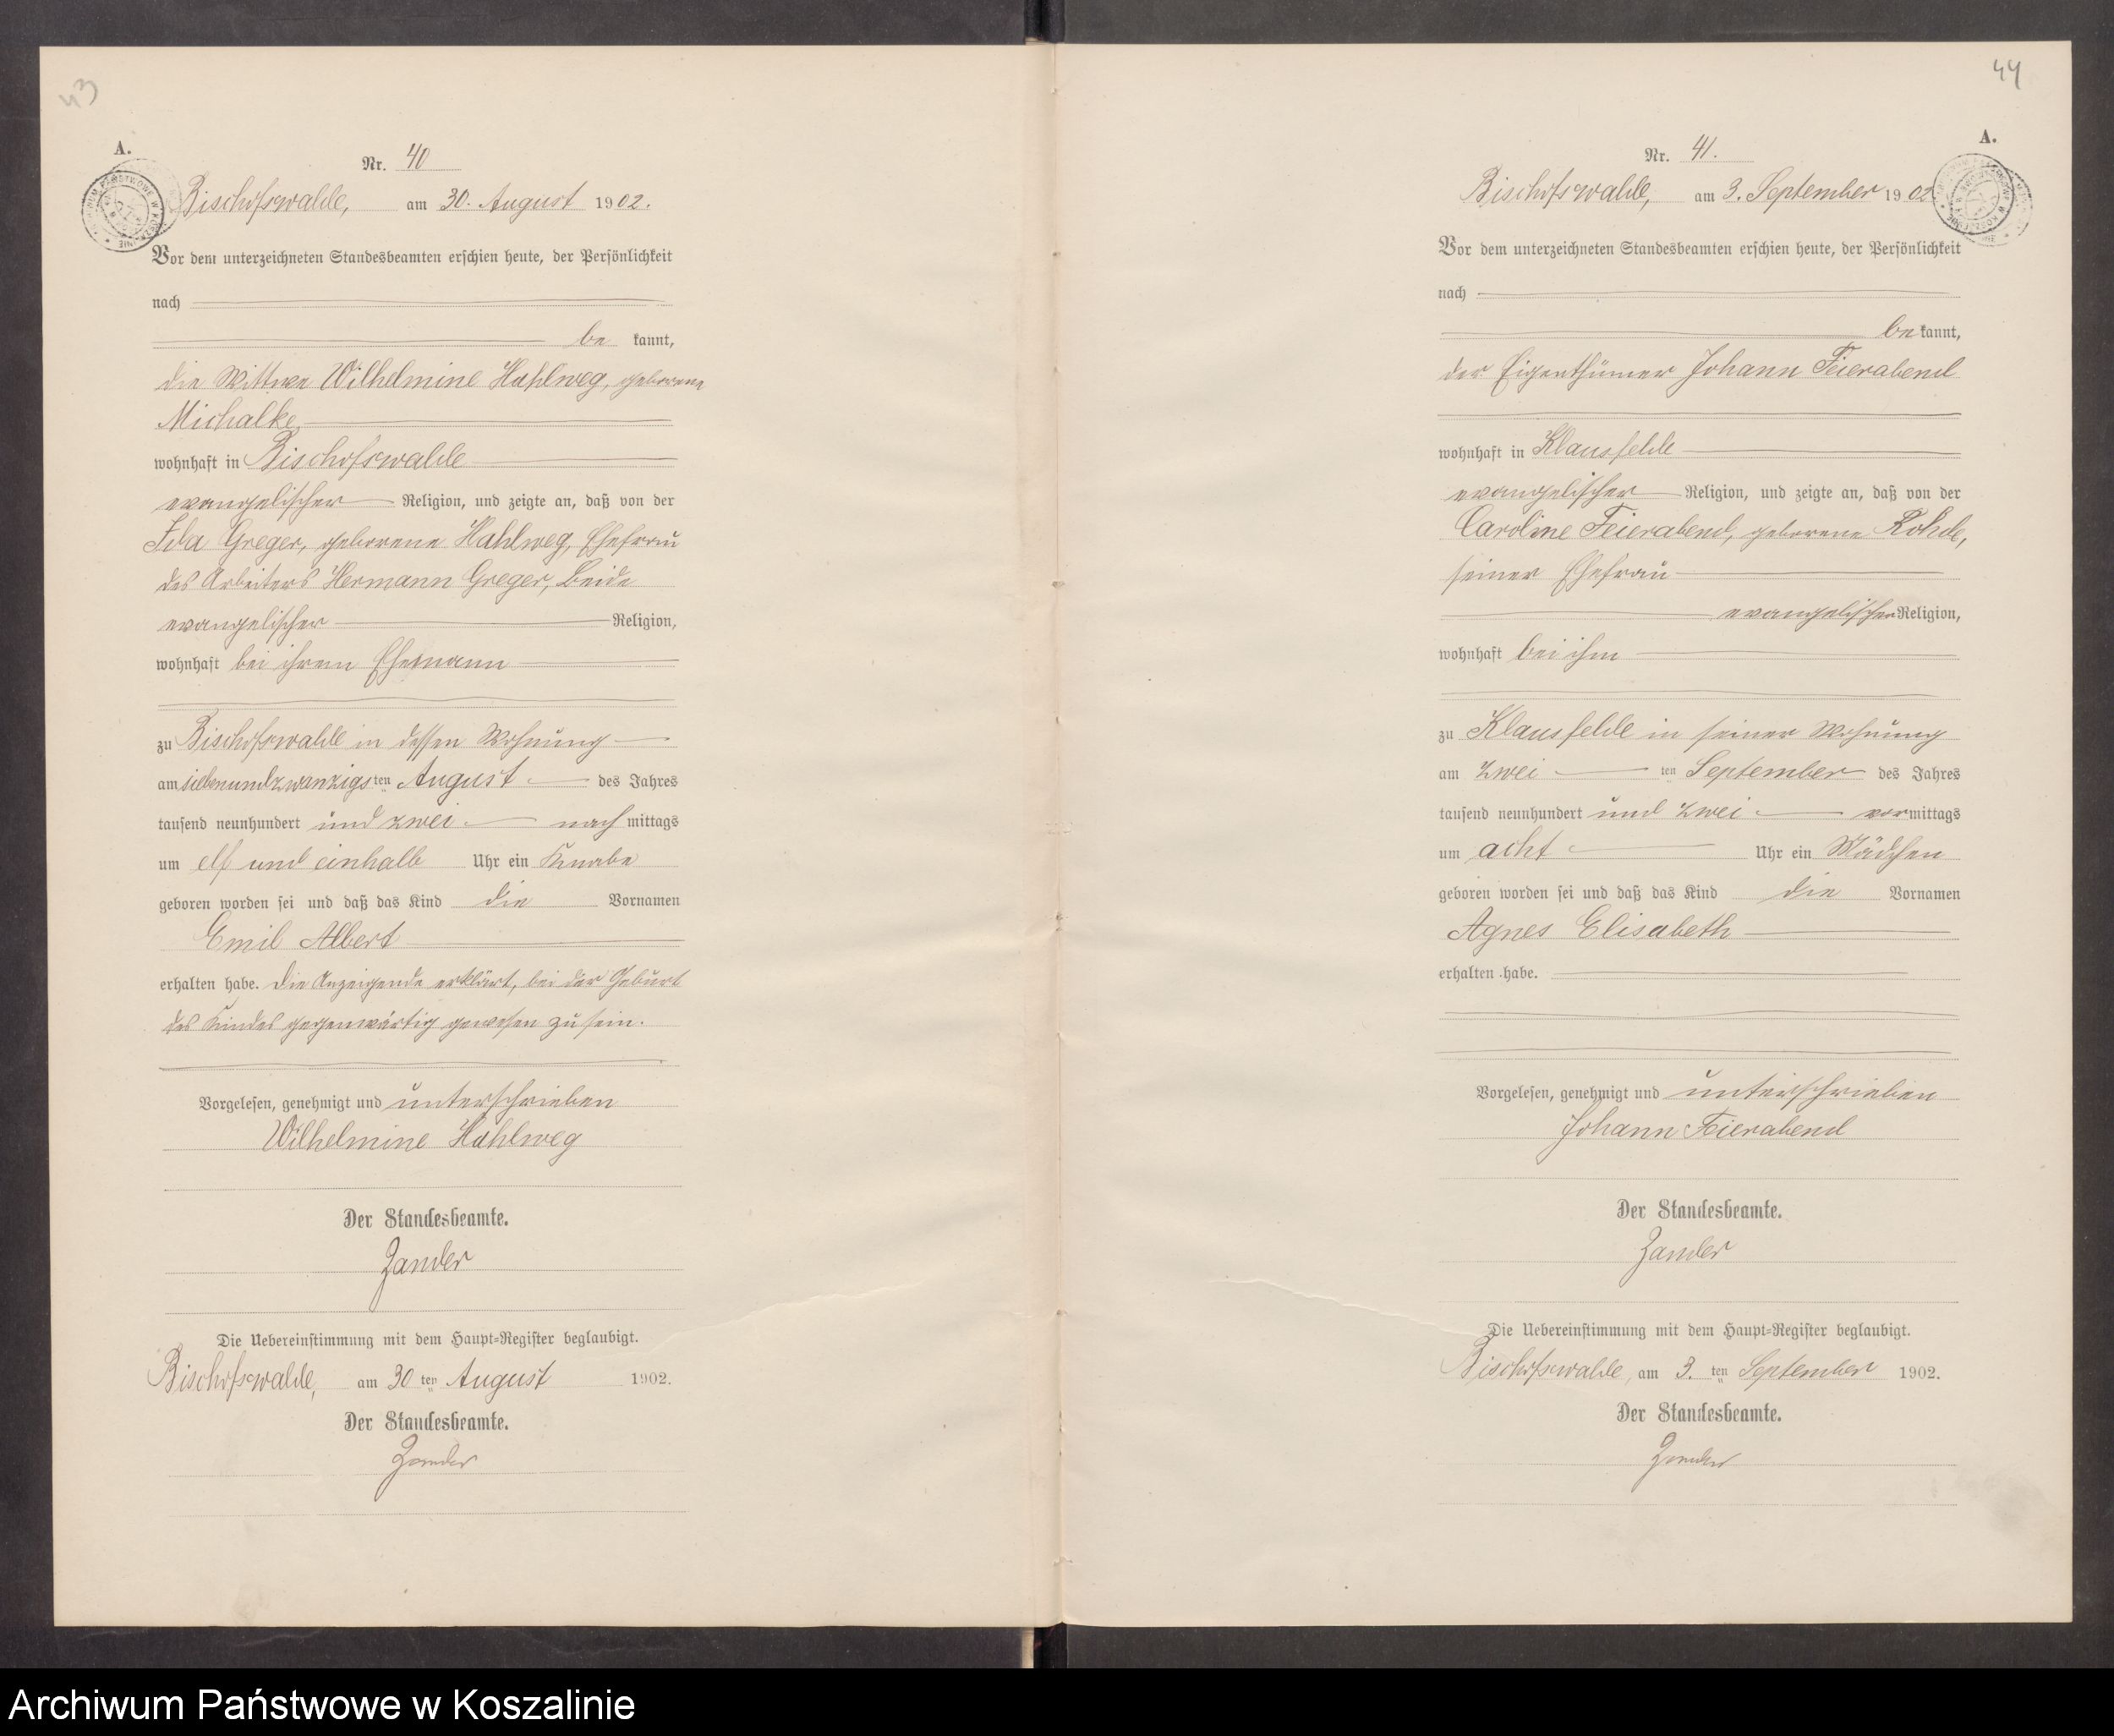 43
A.
Nr. 40
Bischofswalde, am 30. August 1902.
Vor dem unterzeichneten Standesbeamten erschien heute, der Persönlichkeit
nach
be kannt,
die Wittwe Wilhelmine Hahlweg, geborene
Michalke
wohnhaft in Bischofswalde
evangelischer Religion, und zeigte an, daß von der
Ida Greger, geborene Hahlweg, Ehefrau
des Arbeiters Hermann Greger, beide
evangelischer Religion,
wohnhaft bei ihrem Ehemann
zu Bischofswalde in dessen Wohnung
am siebenundzwanzigsten August des Jahres
tausend neunhundert und zwei nachmittags
um elf und einhalb Uhr ein Knabe
geboren worden sei und daß das Kind die Vornamen
Emil Albert
erhalten habe. Die Anzeigende erklärt, bei der Geburt
des Kindes gegenwärtig gewesen zu sein.
Vorgelesen, genehmigt und unterschrieben
Wilhelmine Hahlweg
Der Standesbeamte.
Zander
Die Uebereinstimmung mit dem Haupt-Register beglaubigt.
Bischofswalde, am 30ten August 1902.
Der Standesbeamte.
Zander
44
A.
Nr. 41.
Bischofswalde, am 3. September 1902
Vor dem unterzeichneten Standesbeamten erschien heute, der Persönlichkeit
nach
bekannt,
der Eigenthümer Johann Feierabend
wohnhaft in Klausfelde
evangelischer Religion, und zeigte an, daß von der
Caroline Feierabend, geborene Rohde,
seiner Ehefrau
evangelischer Religion,
wohnhaft bei ihm
zu Klausfelde in seiner Wohnung
am zwei ten September des Jahres
tausend neunhundert und zwei vormittags
um acht Uhr ein Mädchen
geboren worden sei und daß das Kind die Vornamen
Agnes Elisabeth
erhalten habe.
Vorgelesen, genehmigt und unterschrieben
Johann Feierabend
Der Standesbeamte.
Zander
Die Uebereinstimmung mit dem Haupt-Register beglaubigt.
Bischofswalde, am 3. ten September 1902.
Der Standesbeamte.
Zander
Archiwum Państwowe w Koszalinie